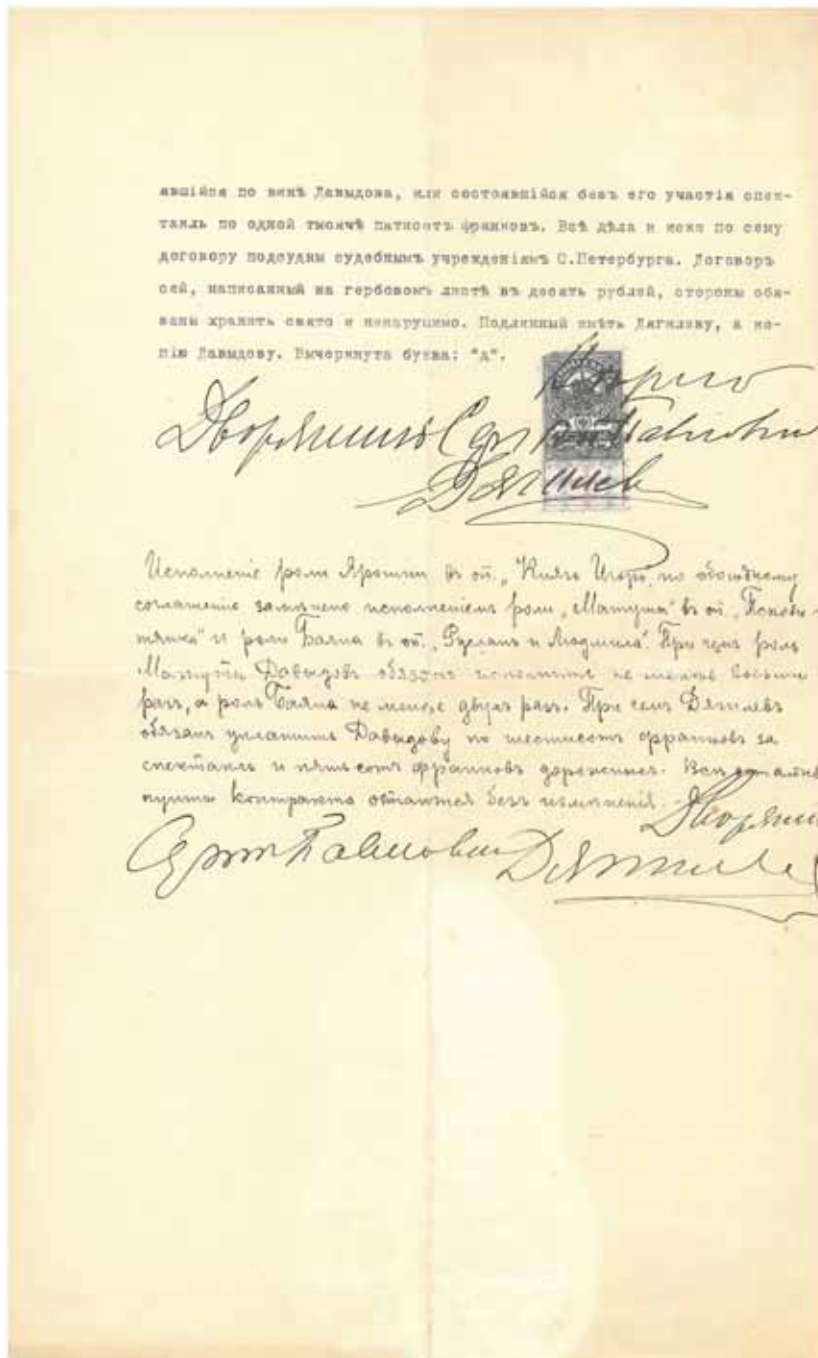 явшійся по винѣ Давыдова, или состоявшійся безъ его участія спек-
такль по одной тысячѣ пятисотъ франковъ. Всѣ дѣла и иски по сему
договору подсудны судебнымъ учрежденіямъ С.Петербурга. Договоръ
сей, написанный на гербовомъ листѣ въ десять рублей, стороны обя-
заны хранить свято и ненарушимо. Подлинный имѣть Дягилеву, а ко-
пію Давыдову. Вычеркнута буква: "д".
Дворянинъ Сергѣй Павловичъ
Дягилевъ
Исполненіе роли Ярошки въ оп. „Князь Игорь", по обоюдному
соглашенію замѣнено исполненіемъ роли „Матута" въ оп. „Пскови-
тянка" и роли Баяна въ оп. „Русланъ и Людмила". При чемъ роль
Матуты Давыдовъ обязанъ исполнить не менѣе восьми
разъ, а роль Баяна не менѣе двухъ разъ. При семъ Дягилевъ
обязанъ уплатить Давыдову по шестисотъ франковъ за
спектакль и пятьсотъ франковъ дорожныхъ. Всѣ остальн
пункты контракта остаются безъ измѣненія. Дворянин
Сергѣй Павловичъ Дягилев